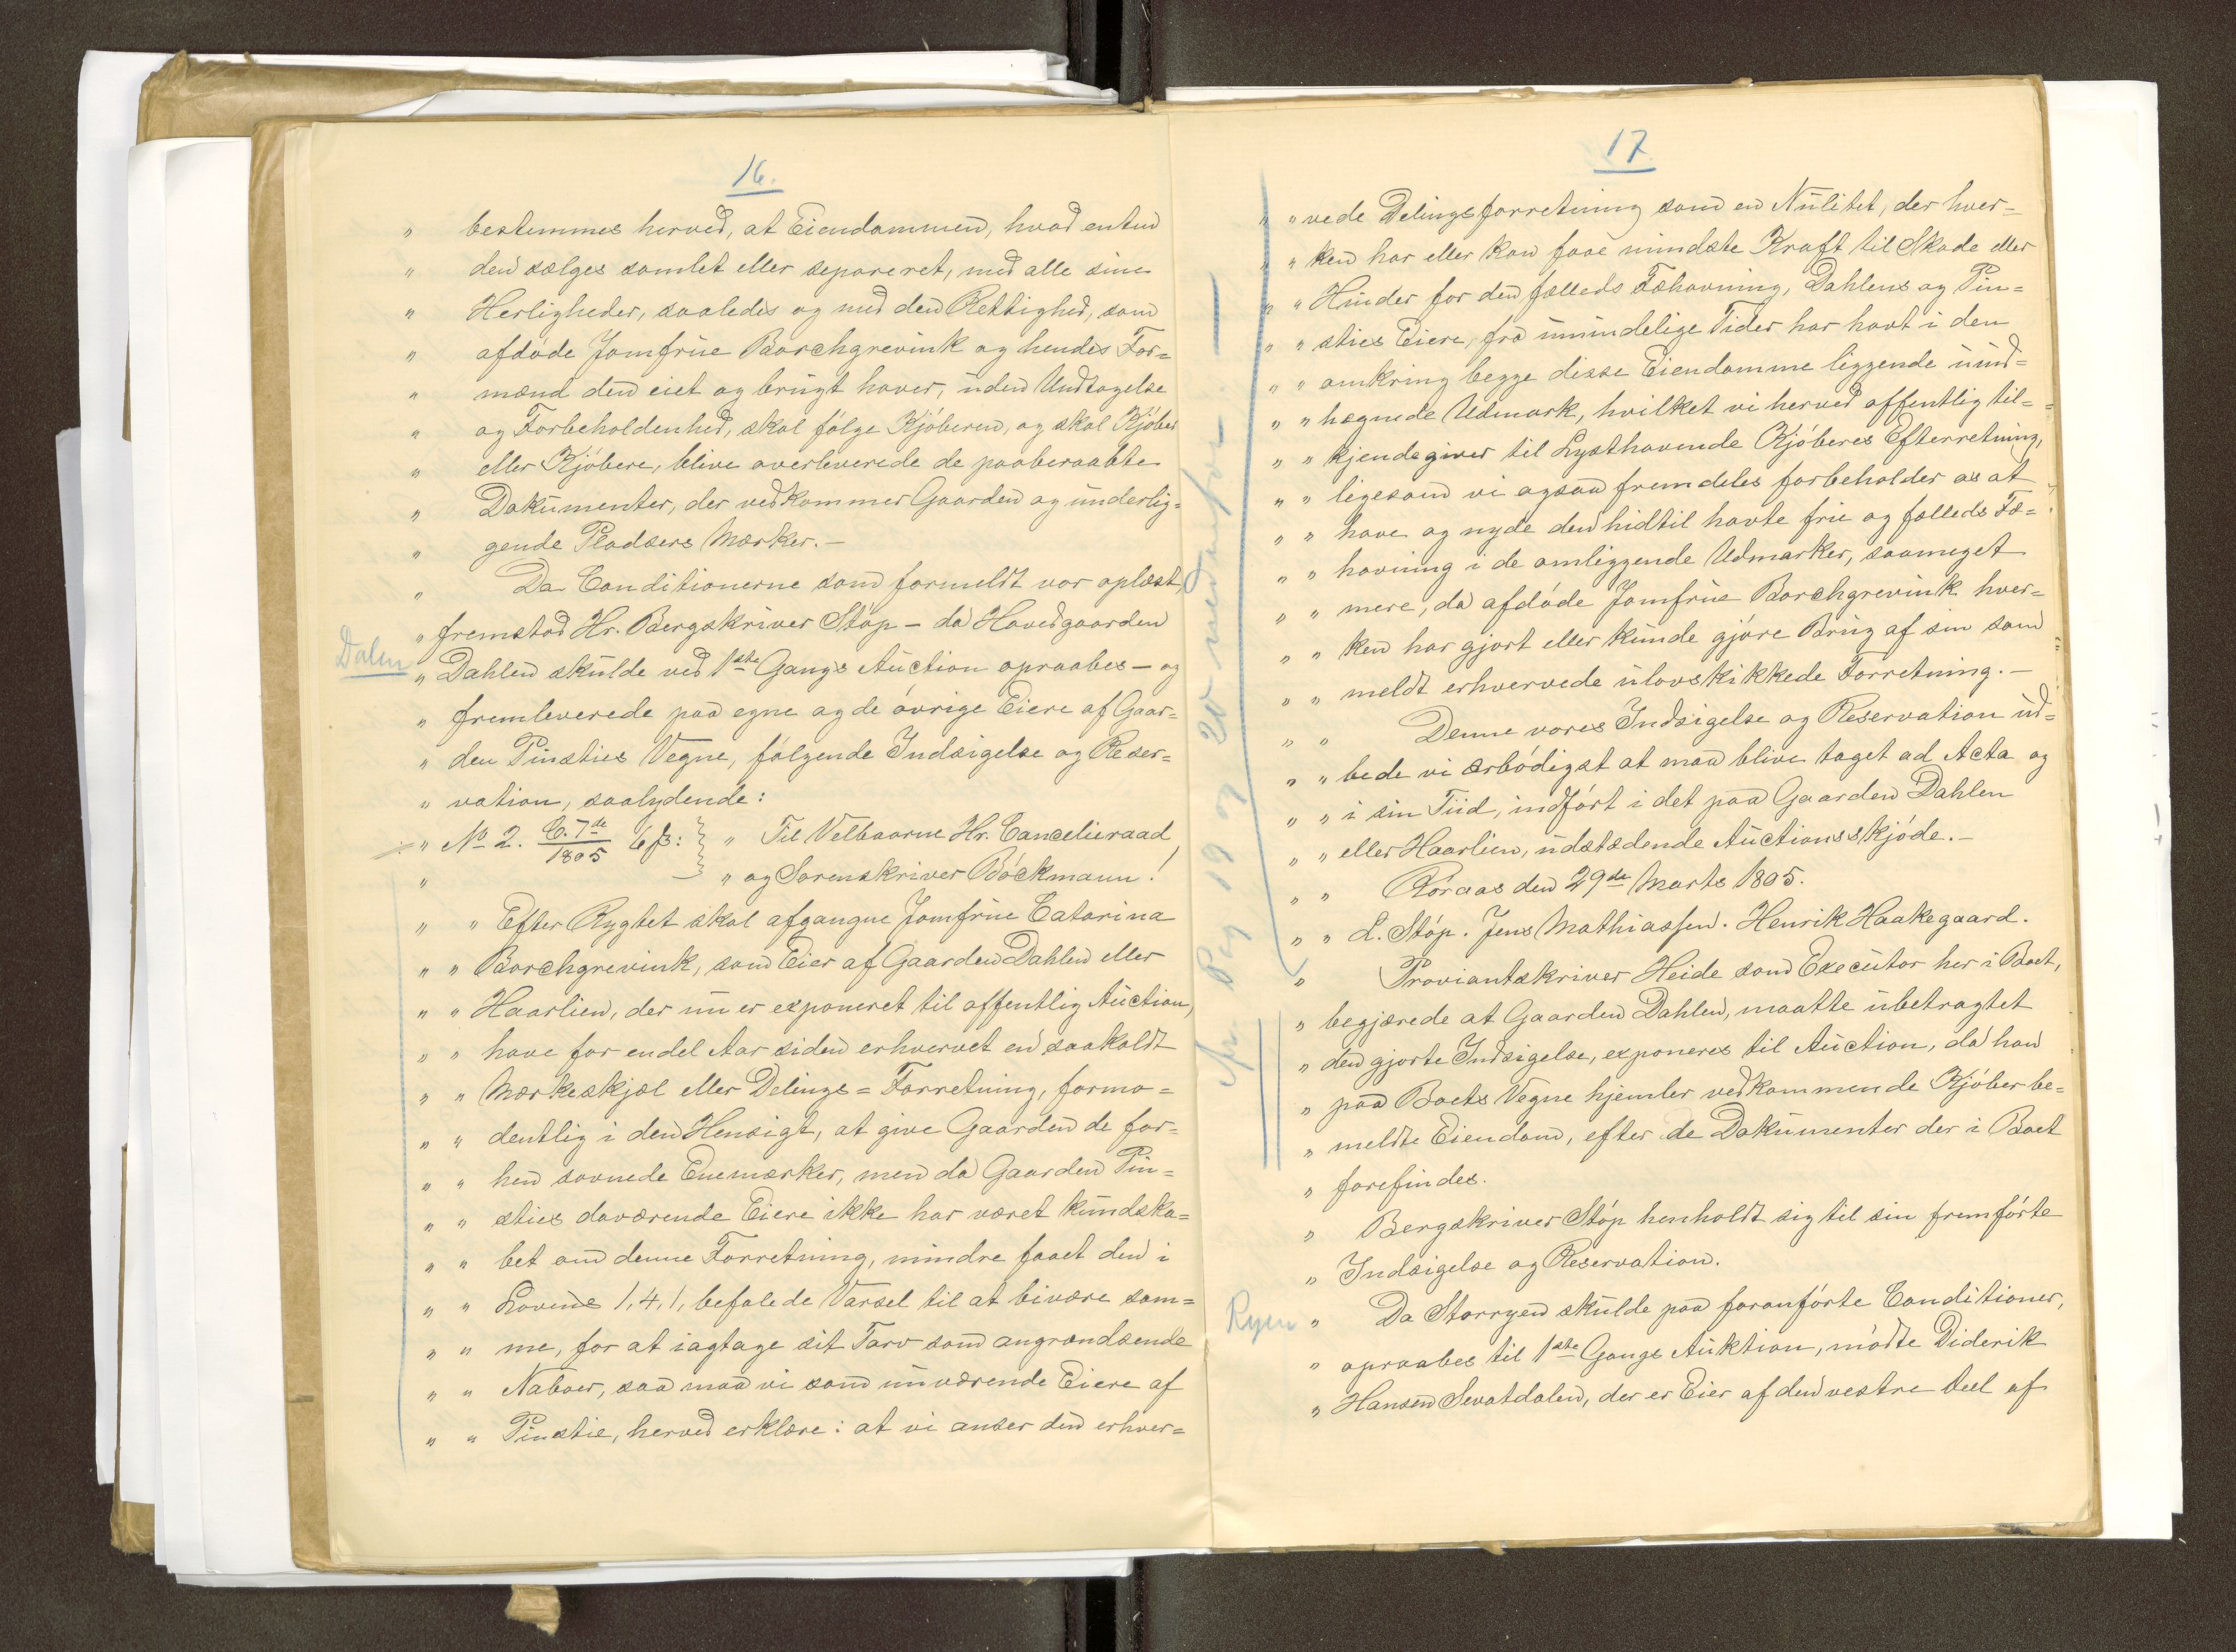 16.
" bestemmes herved, at Eiendommen, hvad enten
" den sælges samlet eller separeret, med alle sine
" Herligheder, saaledes og med den Rettighed, som
" afdøde Jomfrue Borchgrevink og hendes For=
" mænd den eiet og brugt haver, uden Undtagelse
" og Forbeholdenhed, skal følge Kjøberen, og skal Kjøber
" eller Kjøbere, blive overleverede de paaberaabte
" Dokumenter, der vedkommer Gaarden og underlig=
" gende Pladsers Mærker.-
" Da Conditionerne som formeldt var oplæst,
" fremstod Hr. Bergskriver Støp - da Hovedgaarden
Dalen
" Dahlen skulde ved 1ste Gangs Auction opraabes - og
" fremleverede paa egne og de øvrige Eiere af Gaar=
" den Pinsties Vegne, følgende Indsigelse og Reser=
" vation, saalydende:
" No 2. C. 7de 1805 6 ß: " Til Velbaarne Hr. Cancelieraad
" " og Sorenskriver Bøckmann!
" " Efter Rygtet skal afgangne Jomfrue Catarina
" " Borchgrevink, som Eier af Gaarden Dahlen eller
" " Haarlien, der nu er exponeret til offentlig Auction,
" " have for endel Aar siden erhvervet en saakaldt
" " Mærkeskjøl eller Delings=Forretning, formo=
" " dentlig i den Hensigt, at give Gaarden de for=
" " hen savnede Enemærker, men da Gaarden Pin=
" " sties daværende Eiere ikke har været kundska=
" " bet om denne Forretning, mindre faaet den i
" " Lovens 1,4,1, befalede Varsel til at bivære sam=
" " me, for at iagtage sit Tarv som angrændsende
" " Naboer, saa maa vi som nuværende Eiere af
" " Pinstie, herved erklære: at vi anser den erhver=
17
" " vede Delingsforretning som en Nulitet, der hver=
" " ken har eller kan faae mindste Kraft til Skade eller
" " Hinder for den fælleds Fæhavning, Dahlens og Pin=
" " sties Eiere, fra umindelige Tider har havt i den
" " omkring begge disse Eiendomme liggende uind=
" " hægnede Udmark, hvilket vi herved offentlig til=
" " kjendegiver til Lysthavende Kjøberes Efterretning,
" " ligesom vi ogsaa fremdeles forbeholder os at
" " have og nyde den hidtil havte frie og fælleds Fæ=
" " havning i de omliggende Udmarker, saameget
" " mere, da afdøde Jomfrue Borchgrevink hver=
" " ken har gjort eller kunde gjøre Brug af sin som
" " meldt erhvervede ulovskikkede Forretning.-
" " Denne vores Indsigelse og Reservation ud=
" " bede vi ærbødigst at maa blive taget ad Acta og
" " i sin Tiid, indført i det paa Gaarden Dahlen
" " eller Haarlien, udstædende Auctionsskjøde.-
" " Røraas den 29de Marts 1805.
" " L. Støp. Jens Mathiassen. Henrik Haakegaard.
" Proviantskriver Heide som Executor her i Boet,
" begjærede at Gaarden Dahlen, maatte ubetragtet
" den gjorte Indsigelse, exponeres til Auction, da han
" paa Boets Vegne hjemler vedkommende Kjøber be=
" meldte Eiendom, efter de Dokumenter der i Boet
" forefindes.
" Bergskriver Støp henholdt sig til sin fremførte
" Indsigelse og Reservation.
Ryen
" Da Storryen skulde paa foranførte Conditioner,
" opraabes til 1ste Gangs Auktion, mødte Diderik
" Hansen Sevatdalen, der er Eier af den vestre Deel af
Pag 19 og 20 nedenfor